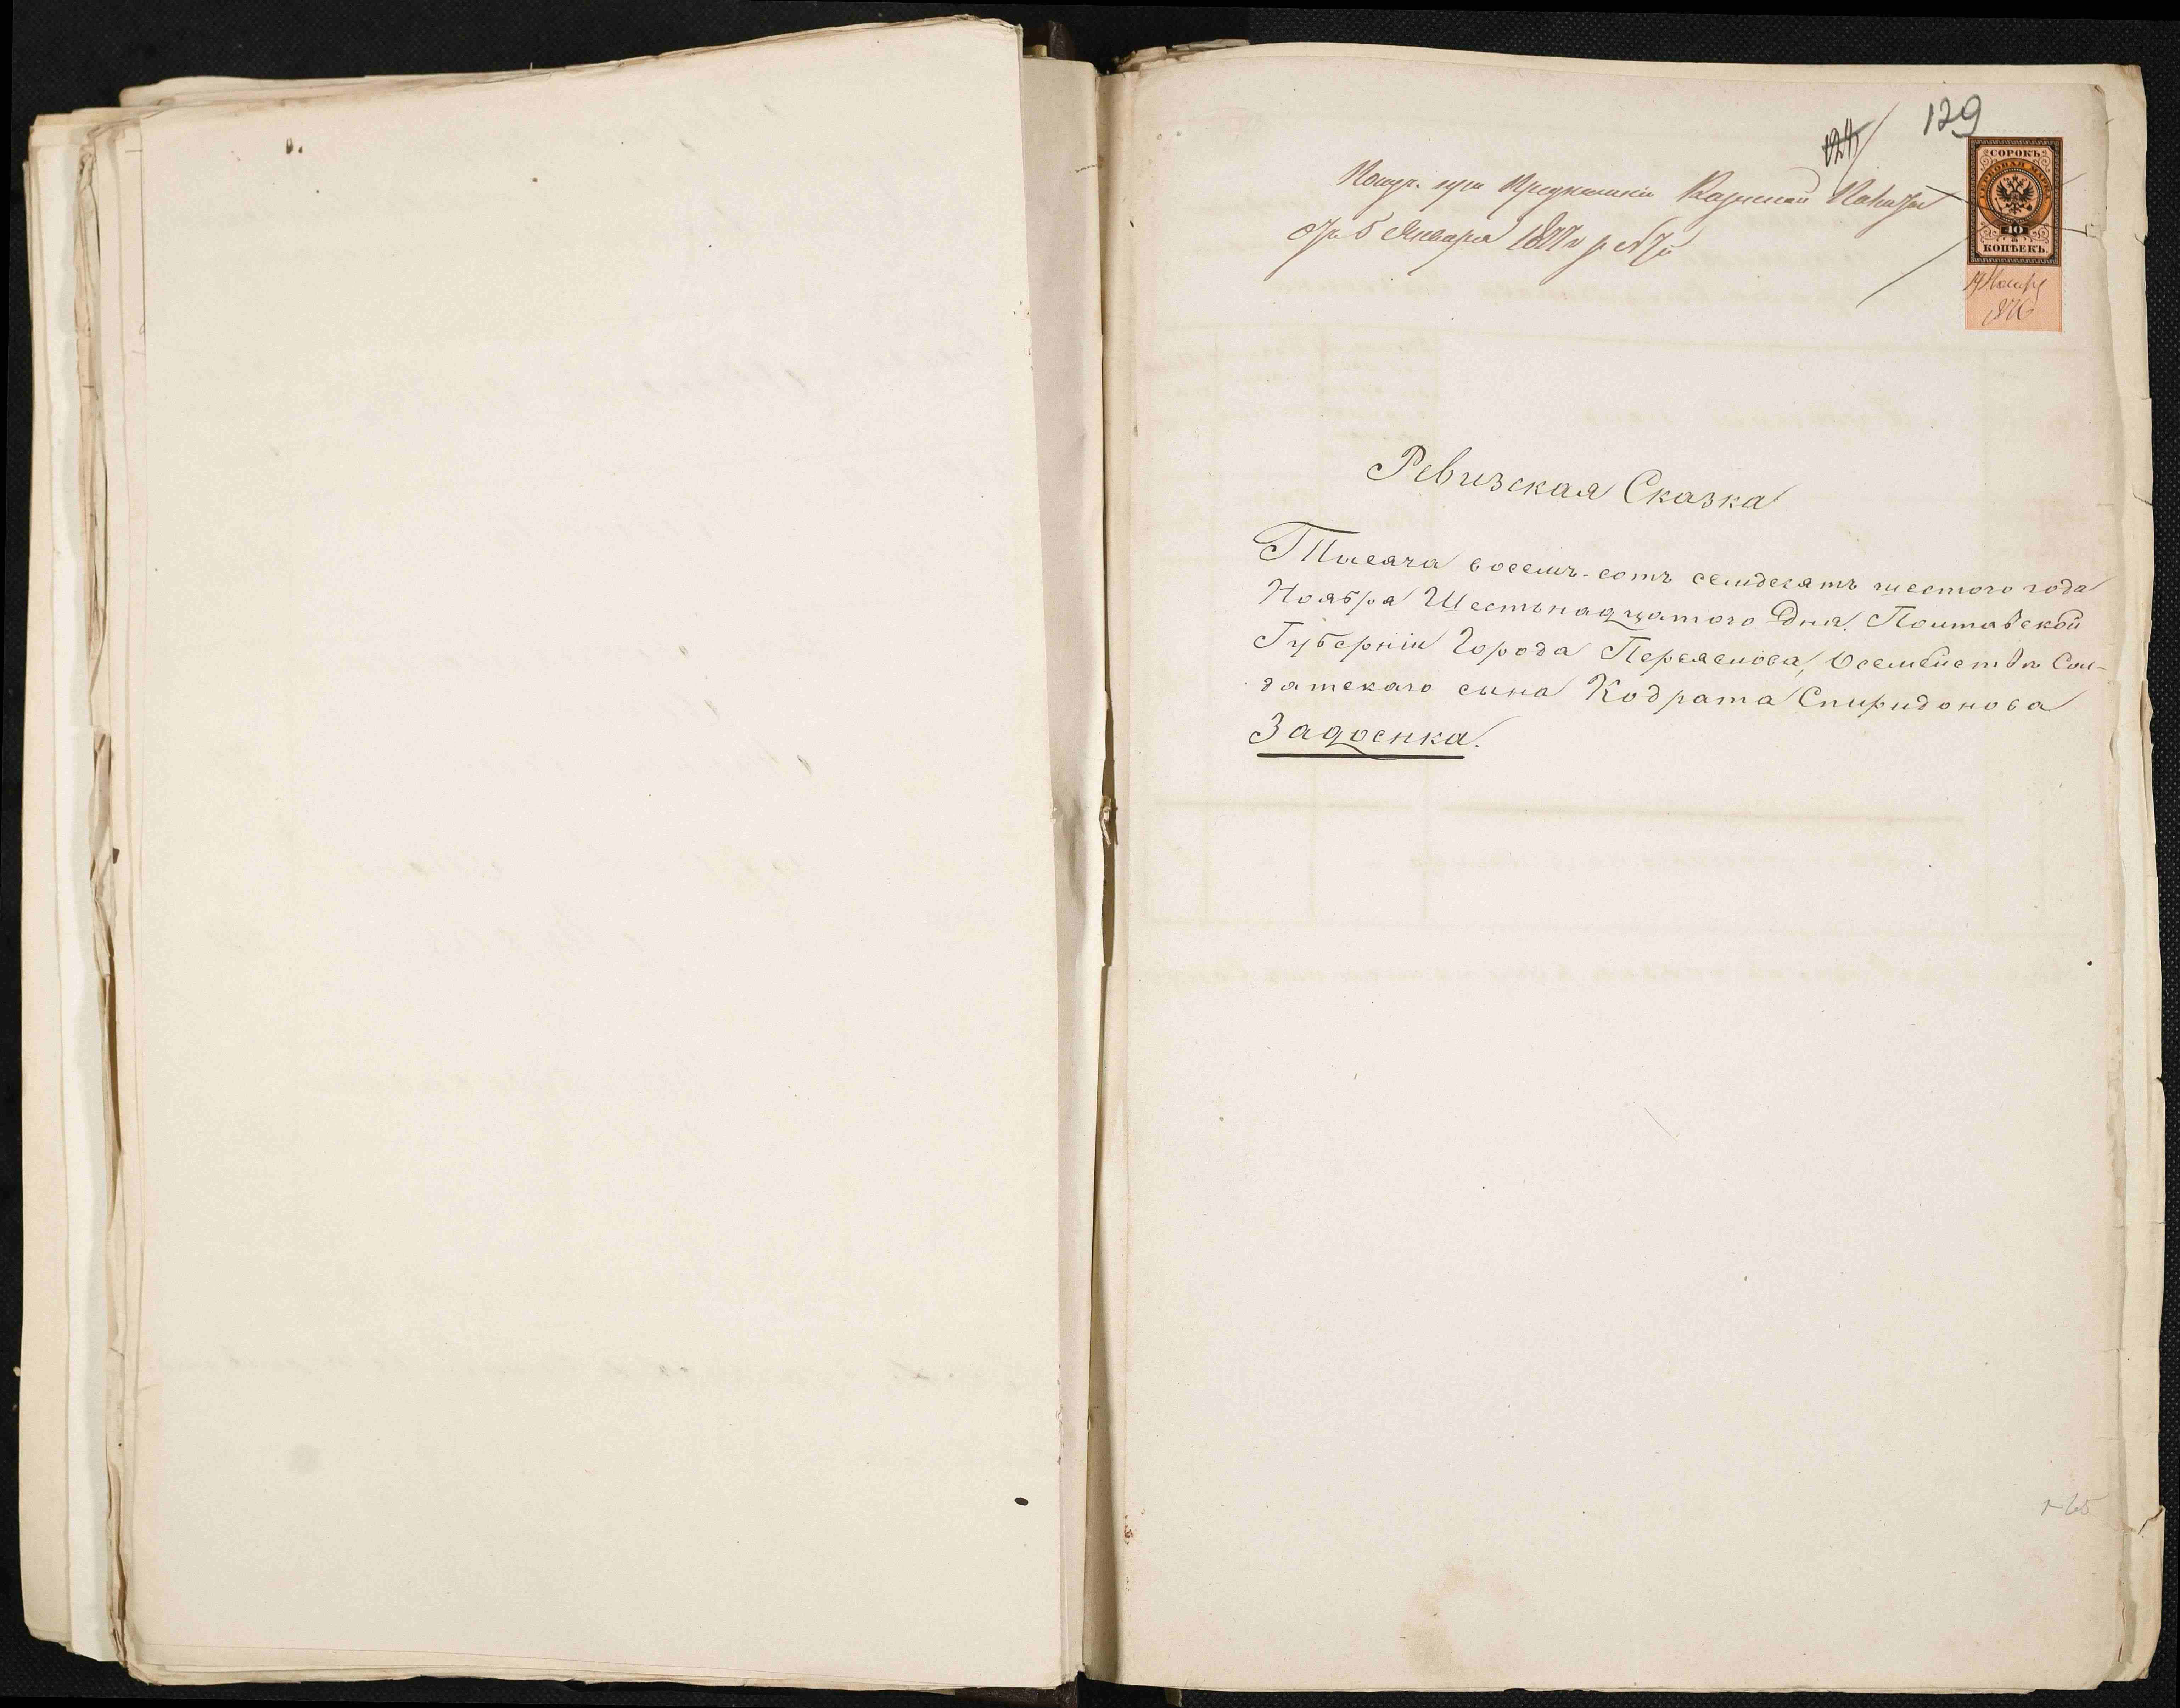 129
124
Получ. при Предписаніи Казенной Палаты
отъ 5 Января 1877 г. №
СОРОКЪ
ГЕРБОВАЯ МАРКА
40
КОПѢЕКЪ.
Ноября
1876
Ревизская Сказка
Тысяча восемь-сотъ семдесятъ шестого года
Ноября Шестьнадцатого Дня. Полтавской
Губерніи Города Переяслова, О семействѣ Сол-
датскаго сына Кодрата Спиридонова
Задоенка.